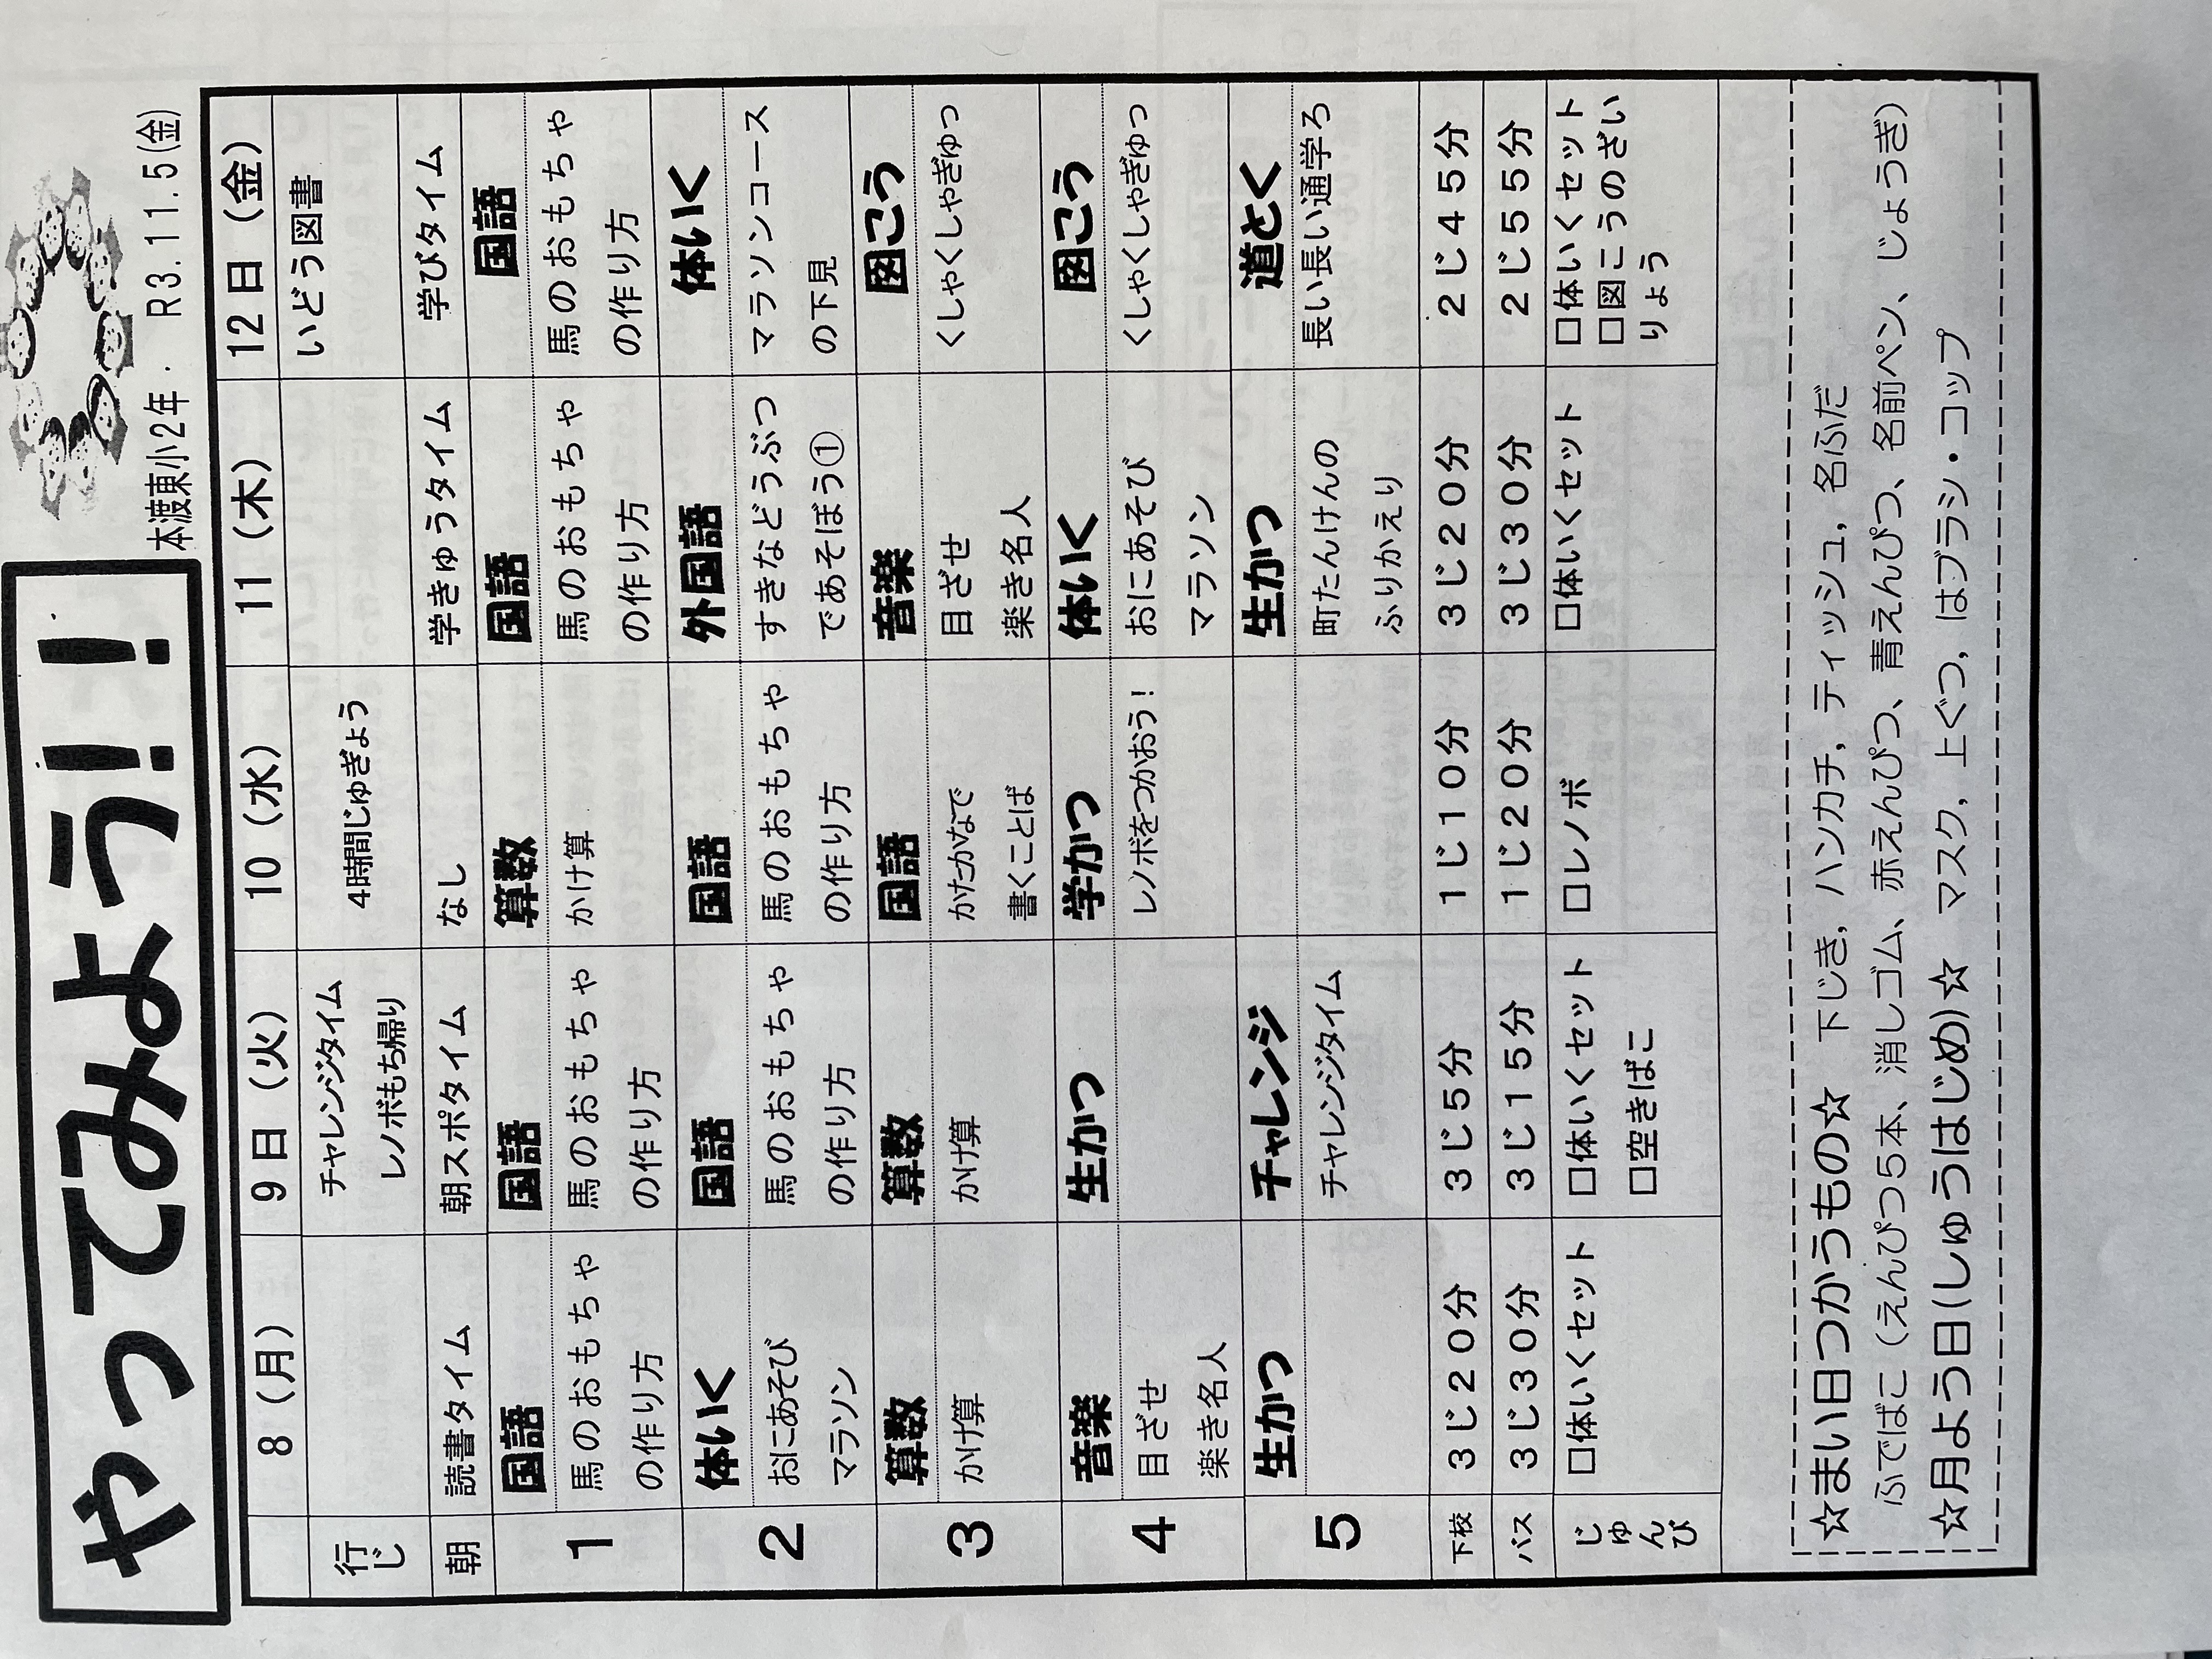 やってみよう!!
本渡東小2年. R3.11.5(金)
8(月) 9日(火) 10(水) 11(木) 12日(金)
行じ チャレンジタイム 4時間じゅぎょう いどう図書
レノボもち帰り
朝 読書タイム 朝スポタイム なし 学きゅうタイム 学びタイム
1 国語 国語 算数 国語 国語
馬のおもちゃ 馬のおもちゃ かけ算 馬のおもちゃ 馬のおもちゃ
の作り方 の作り方 の作り方 の作り方
2 体いく 国語 国語 外国語 体いく
おにあそび 馬のおもちゃ 馬のおもちゃ すきなどうぶつ マラソンコース
マラソン の作り方 の作り方 であそぼう① の下見
3 算数 算数 国語 音楽 図こう
かけ算 かけ算 かたかなで 目ざせ くしゃくしゃぎゅっ
書くことば 楽き名人
4 音楽 生かつ 学かつ 体いく 図こう
目ざせ レノボをつかおう! おにあそび くしゃくしゃぎゅっ
楽き名人 マラソン
5 生かつ チャレンジ 生かつ 道とく
チャレンジタイム 町たんけんの 長い長い通学ろ
ふりかえり
下校 3じ20分 3じ5分 1じ10分 3じ20分 2じ45分
バス 3じ30分 3じ15分 1じ20分 3じ30分 2じ55分
じゅんび □体いくセット □体いくセット □レノボ □体いくセット □体いくセット
□空きばこ □図こうのざい
りょう
☆まい日つかうもの☆ 下じき,ハンカチ,ティッシュ,名ふだ
ふでばこ(えんぴつ5本、消しゴム、赤えんぴつ、青えんぴつ、名前ペン、じょうぎ)
☆月よう日(しゅうはじめ)☆ マスク,上ぐつ,はブラシ・コップ